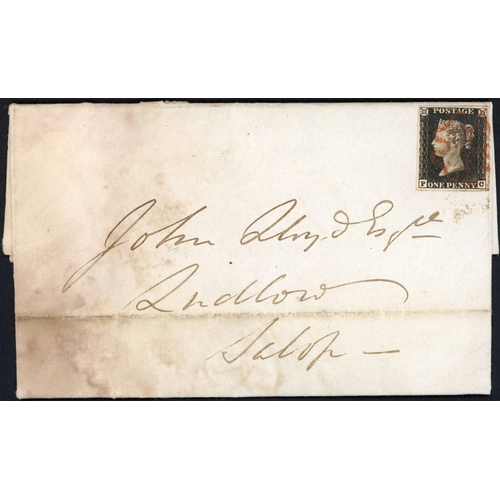 POSTAGE
P C
ONE PENNY
John Lloyd Esqre
Ludlow
Salop —